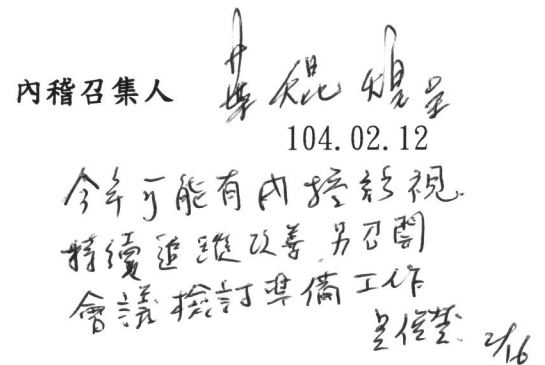 內稽召集人 葉焜煌呈
104.02.12
今年可能有內控訪視
持續追蹤改善.另召開
會議檢討準備工作
2/16